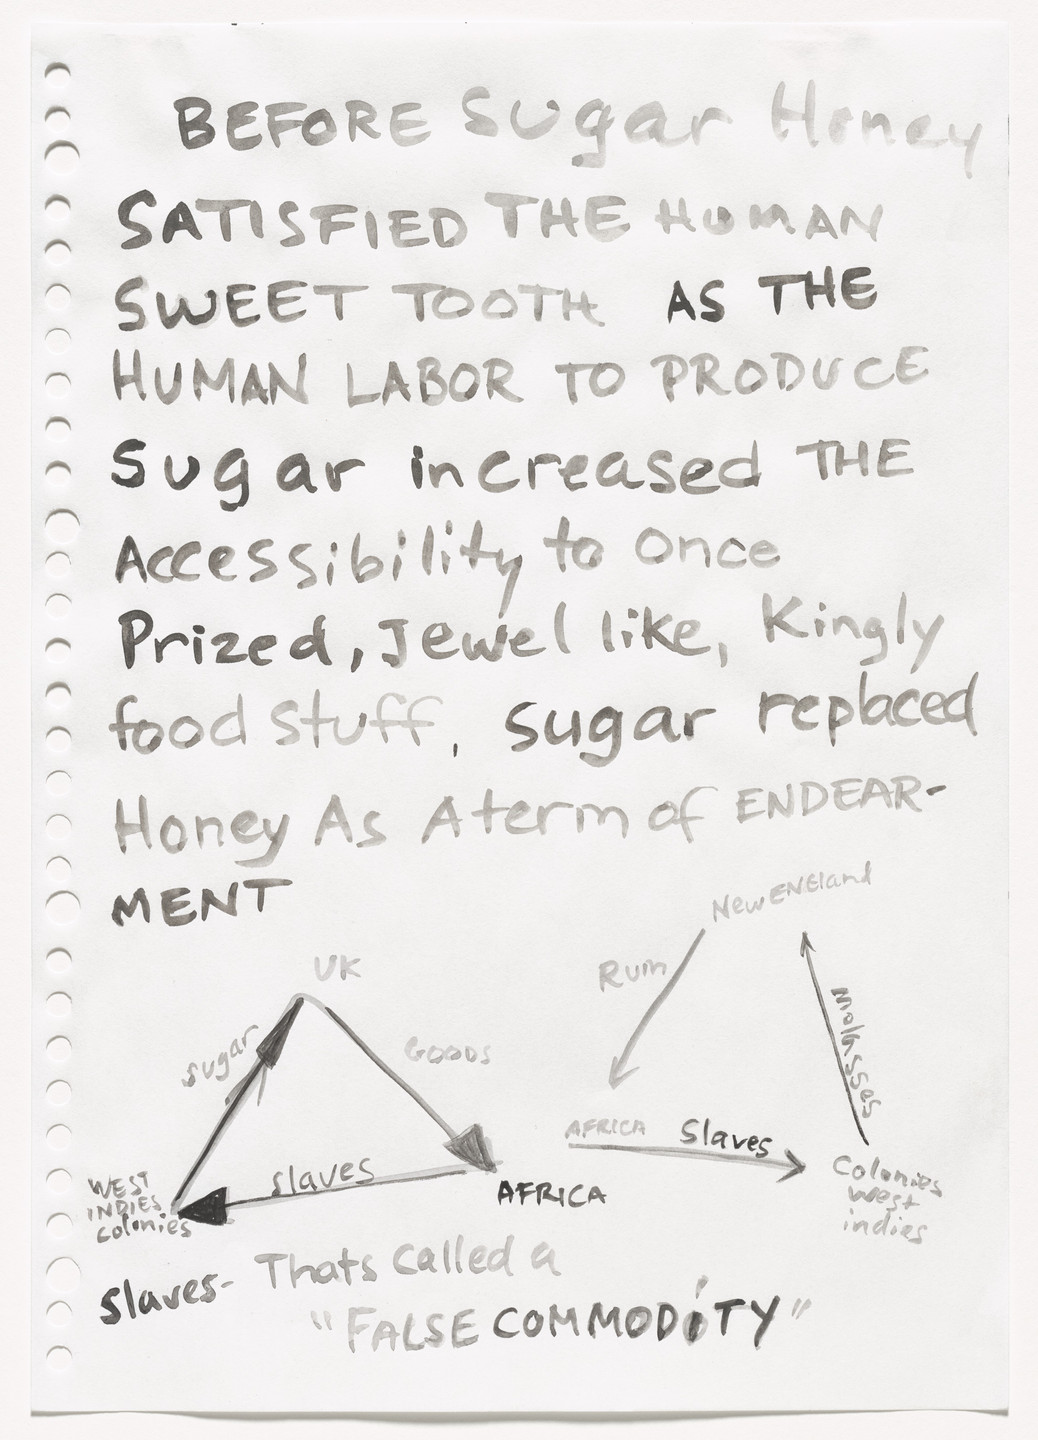 BEFORE Sugar Honey
SATISFIED THE HUMAN
SWEET TOOTH AS THE
HUMAN LABOR TO PRODUCE
Sugar increased THE
Accessibility to once
Prized, Jewel like, Kingly
food stuff, sugar replaced
Honey As A term of ENDEAR-
MENT
New ENGland
UK
Rum
molasses
sugar
GOODS
AFRICA
Slaves
slaves
WEST
INDIES
colonies
AFRICA
Colonies
west
indies
slaves- Thats called a
"FALSE COMMODiTY"